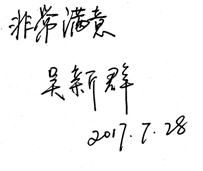 非常满意
吴新群
2017.7.28